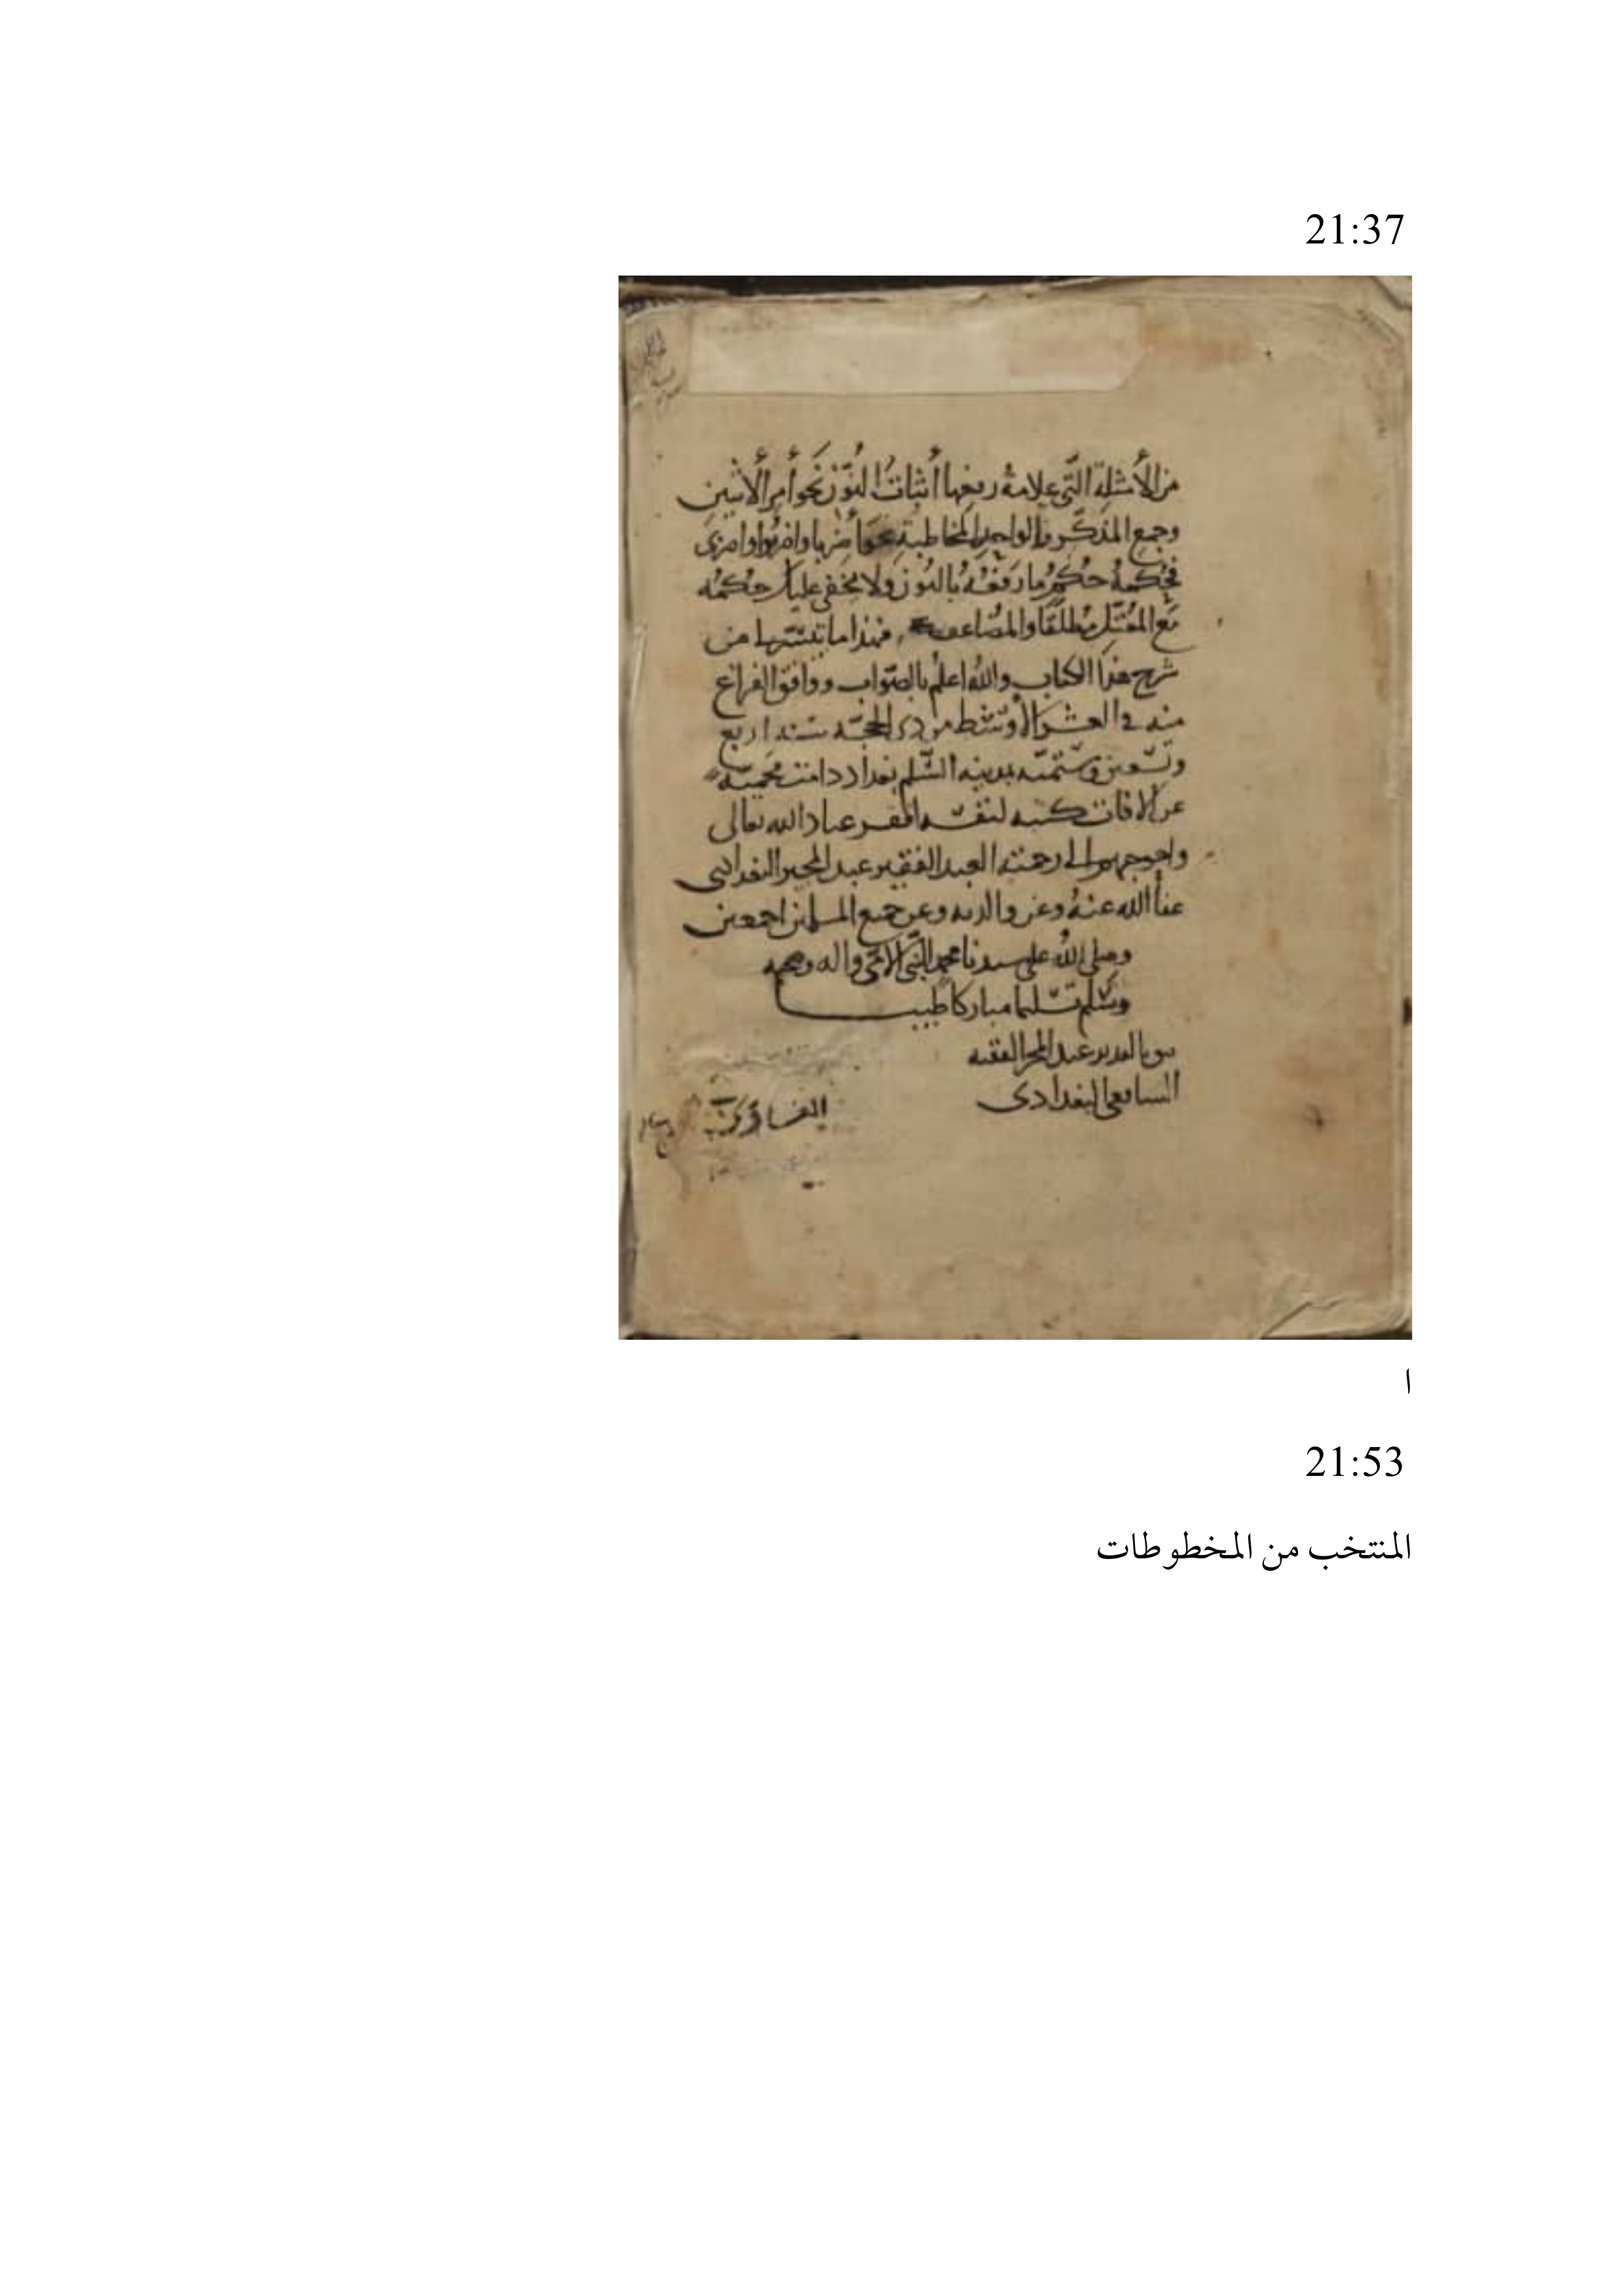 21:37
من الأمثلة التي علامة رفعها أثبات النون نحو أمر الأثنين
وجمع المذكر والواحد المخاطبة نحو أضربا واضربوا واضربى
فحكمه حكم ما رفعه بالنون ولا يخفى عليك حكمه
مع المعتل مطلقا والمضاعف فهذا ما تيسر لنا من
شرح هذا الكتاب والله اعلم بالصواب ووافق الفراغ
منه في العشر الأوسط من ذي الحجة سنة اربع
وتسعين وستمئه بمدينه السلم بغداد دامت محميه
عن الافات كتبه لنفسه افقر عباد الله تعالى
واحوجهم الى رحمته العبد الفقير عبد المجير البغدادى
عفا الله عنه وعن والديه وعن جميع المسلمين اجمعين
وصلى الله على سيدنا محمد النبي الامي واله وصحبه
وسلم تسليما مباركا طيبا
عبد المجير الفقيه
الشافعي البغدادى
ا
21:53
المنتخب من المخطوطات